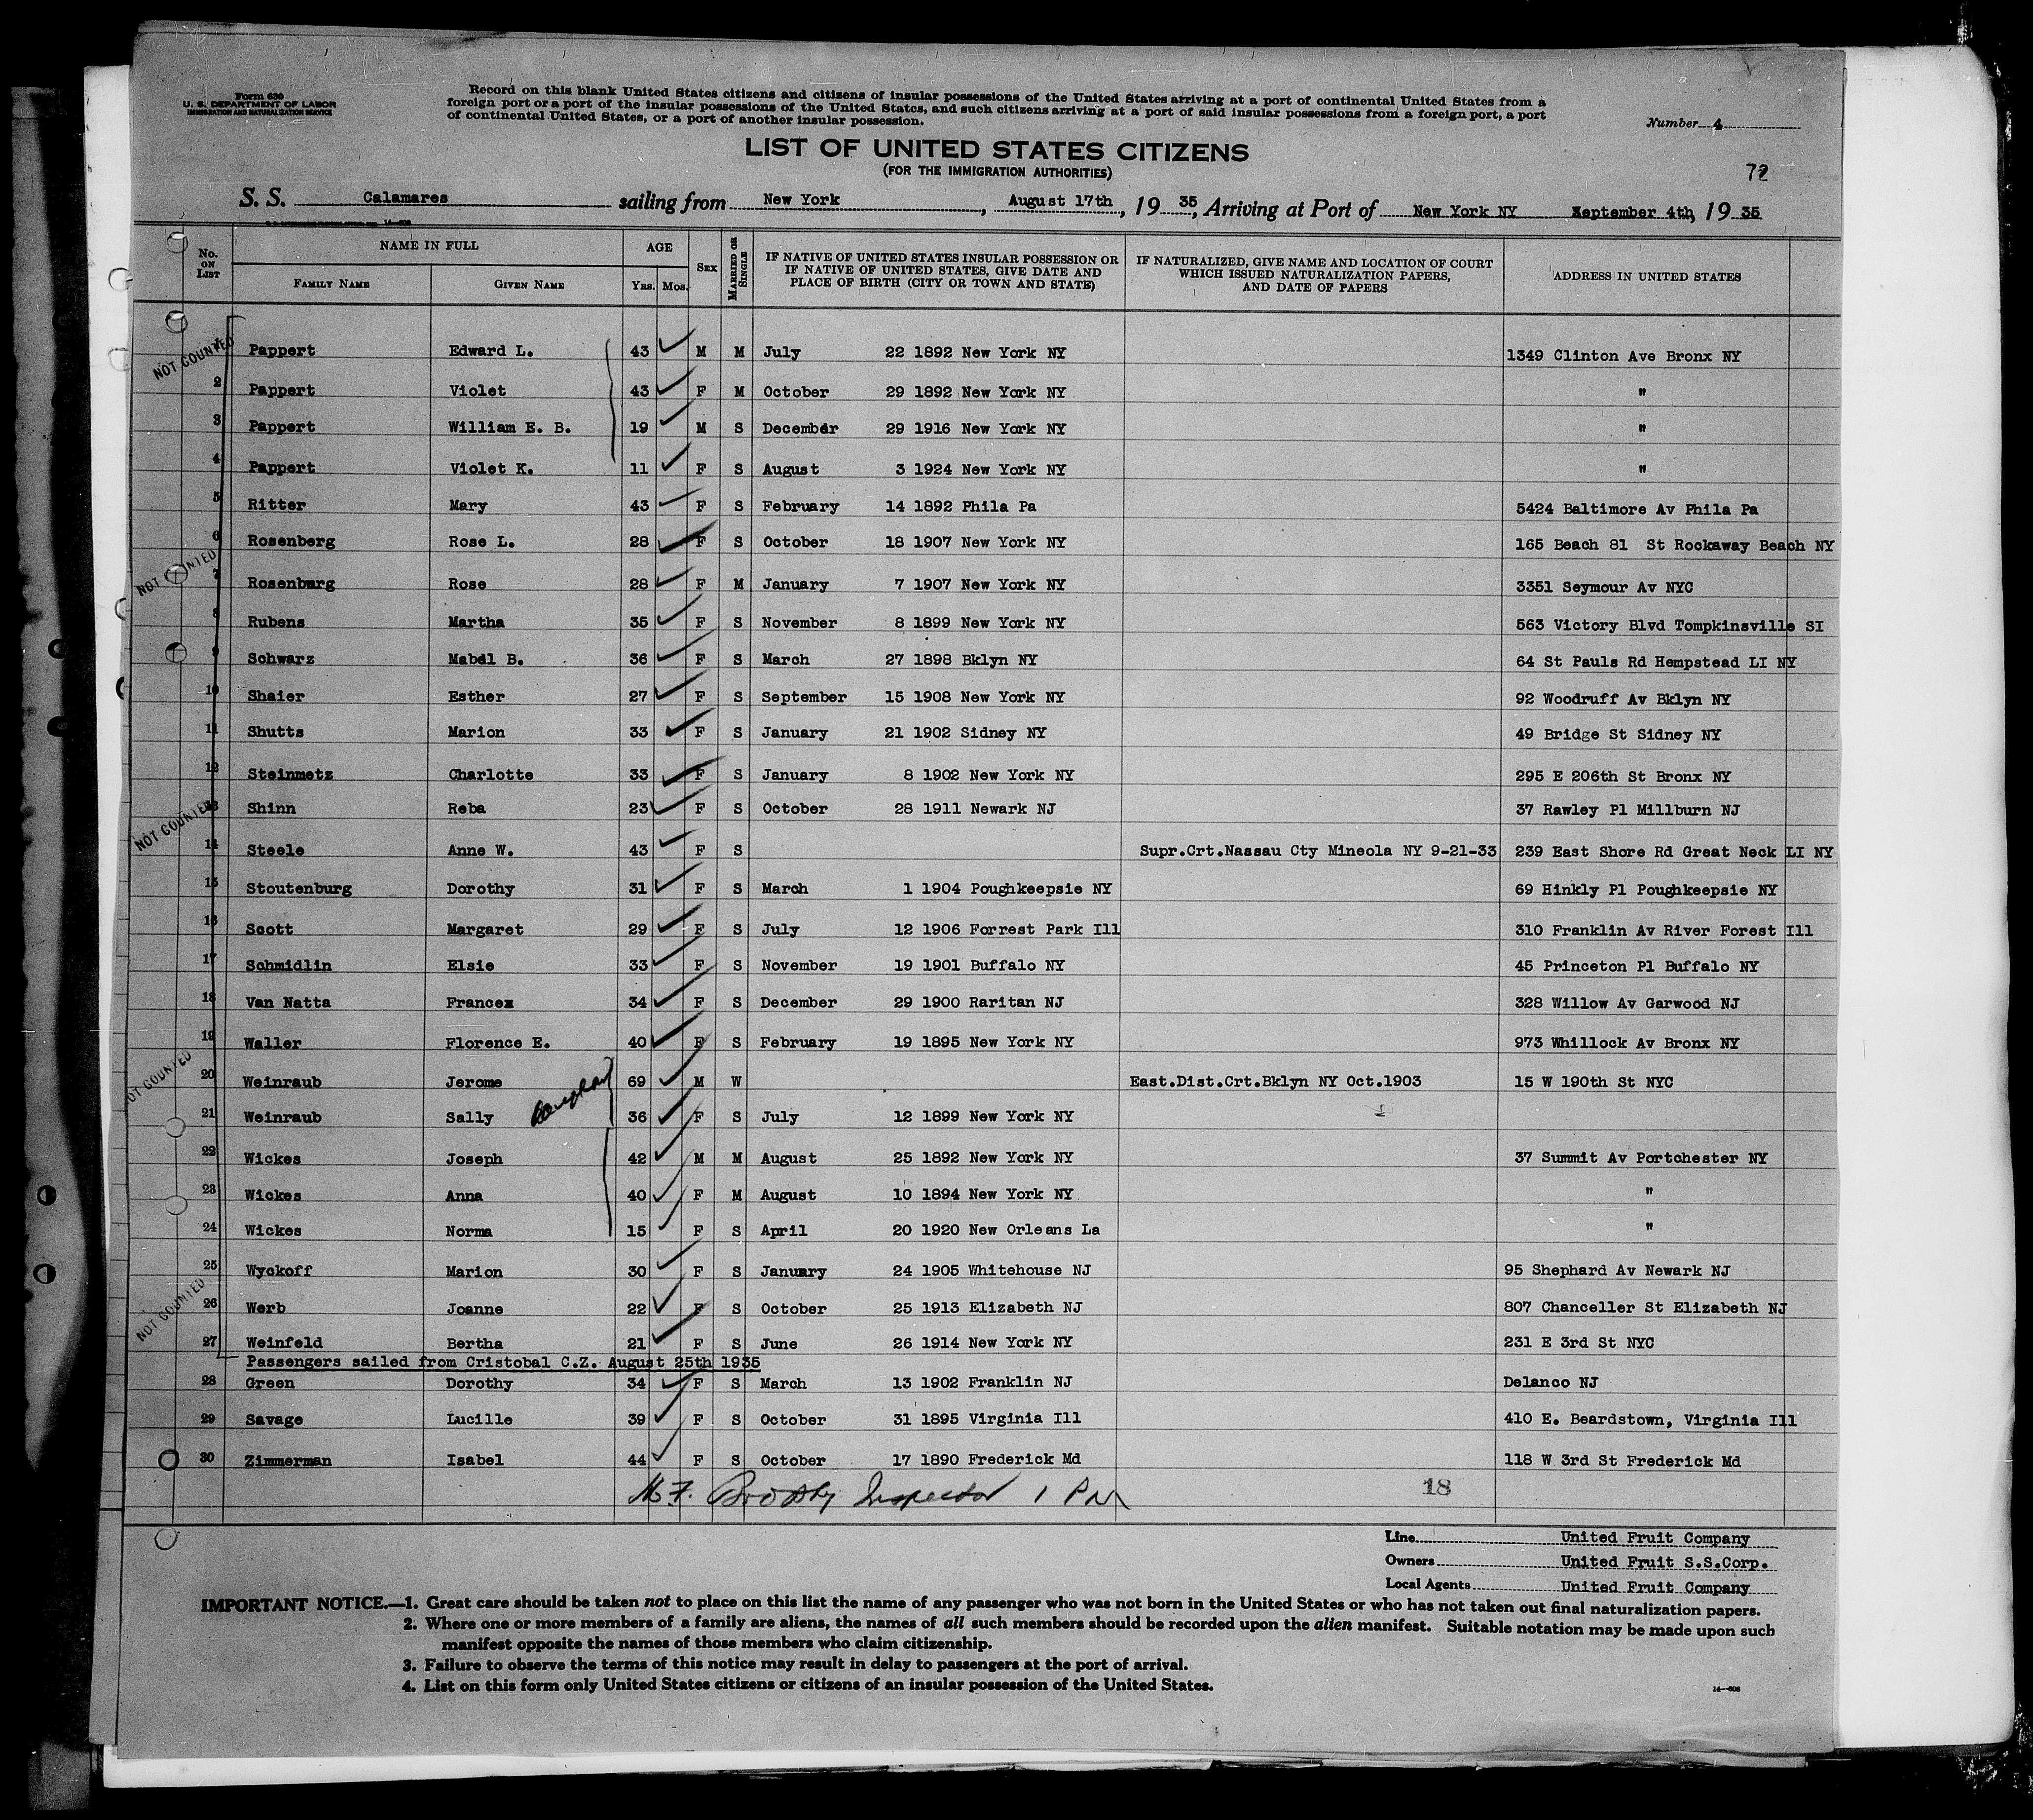 Form 630
U. S. DEPARTMENT OF LABOR
IMMIGRATION AND NATURALIZATION SERVICE
Record on this blank United States citizens and citizens of insular possessions of the United States arriving at a port of continental United States from a
foreign port or a port of the insular possessions of the United States, and such citizens arriving at a port of said insular possessions from a foreign port, a port
of continental United States, or a port of another insular possession.
Number 4
LIST OF UNITED STATES CITIZENS
(FOR THE IMMIGRATION AUTHORITIES)
72
S. S. Calamares sailing from New York, August 17th, 19 35, Arriving at Port of New York NY September 4th, 19 35
No. ON LIST NAME IN FULL AGE SEX MARRIED OR SINGLE IF NATIVE OF UNITED STATES INSULAR POSSESSION OR IF NATIVE OF UNITED STATES, GIVE DATE AND PLACE OF BIRTH (CITY OR TOWN AND STATE) IF NATURALIZED, GIVE NAME AND LOCATION OF COURT WHICH ISSUED NATURALIZATION PAPERS, AND DATE OF PAPERS ADDRESS IN UNITED STATES
FAMILY NAME GIVEN NAME YRS. MOS.
NOT COUNTED
1 Pappert Edward L. 43 M M July 22 1892 New York NY 1349 Clinton Ave Bronx NY
2 Pappert Violet 43 F M October 29 1892 New York NY "
3 Pappert William E. B. 19 M S December 29 1916 New York NY "
4 Pappert Violet K. 11 F S August 3 1924 New York NY "
5 Ritter Mary 43 F S February 14 1892 Phila Pa 5424 Baltimore Av Phila Pa
6 Rosenberg Rose L. 28 F S October 18 1907 New York NY 165 Beach 81 St Rockaway Beach NY
NOT COUNTED
7 Rosenburg Rose 28 F M January 7 1907 New York NY 3351 Seymour Av NYC
8 Rubens Martha 35 F S November 8 1899 New York NY 563 Victory Blvd Tompkinsville SI
9 Schwarz Mabel B. 36 F S March 27 1898 Bklyn NY 64 St Pauls Rd Hempstead LI NY
10 Shaier Esther 27 F S September 15 1908 New York NY 92 Woodruff Av Bklyn NY
11 Shutts Marion 33 F S January 21 1902 Sidney NY 49 Bridge St Sidney NY
12 Steinmetz Charlotte 33 F S January 8 1902 New York NY 295 E 206th St Bronx NY
13 Shinn Reba 23 F S October 28 1911 Newark NJ 37 Rawley Pl Millburn NJ
NOT COUNTED
14 Steele Anne W. 43 F S Supr.Crt.Nassau Cty Mineola NY 9-21-33 239 East Shore Rd Great Neck LI NY
15 Stoutenburg Dorothy 31 F S March 1 1904 Poughkeepsie NY 69 Hinkly Pl Poughkeepsie NY
16 Scott Margaret 29 F S July 12 1906 Forrest Park Ill 310 Franklin Av River Forest Ill
17 Schmidlin Elsie 33 F S November 19 1901 Buffalo NY 45 Princeton Pl Buffalo NY
18 Van Natta Frances 34 F S December 29 1900 Raritan NJ 328 Willow Av Garwood NJ
19 Waller Florence E. 40 F S February 19 1895 New York NY 973 Whillock Av Bronx NY
NOT COUNTED
20 Weinraub Jerome 69 M W East.Dist.Crt.Bklyn NY Oct.1903 15 W 190th St NYC
21 Weinraub Sally daughter 36 F S July 12 1899 New York NY
22 Wickes Joseph 42 M M August 25 1892 New York NY 37 Summit Av Portchester NY
23 Wickes Anna 40 F M August 10 1894 New York NY "
24 Wickes Norma 15 F S April 20 1920 New Orleans La "
25 Wyckoff Marion 30 F S January 24 1905 Whitehouse NJ 95 Shephard Av Newark NJ
NOT COUNTED
26 Werb Joanne 22 F S October 25 1913 Elizabeth NJ 807 Chanceller St Elizabeth NJ
27 Weinfeld Bertha 21 F S June 26 1914 New York NY 231 E 3rd St NYC
Passengers sailed from Cristobal C.Z. August 25th 1935
28 Green Dorothy 34 F S March 13 1902 Franklin NJ Delanco NJ
29 Savage Lucille 39 F S October 31 1895 Virginia Ill 410 E. Beardstown, Virginia Ill
30 Zimmerman Isabel 44 F S October 17 1890 Frederick Md 118 W 3rd St Frederick Md
Inspector 18
Line United Fruit Company
Owners United Fruit S.S.Corp.
Local Agents United Fruit Company
IMPORTANT NOTICE.—1. Great care should be taken not to place on this list the name of any passenger who was not born in the United States or who has not taken out final naturalization papers.
2. Where one or more members of a family are aliens, the names of all such members should be recorded upon the alien manifest. Suitable notation may be made upon such
manifest opposite the names of those members who claim citizenship.
3. Failure to observe the terms of this notice may result in delay to passengers at the port of arrival.
4. List on this form only United States citizens or citizens of an insular possession of the United States.
14—608